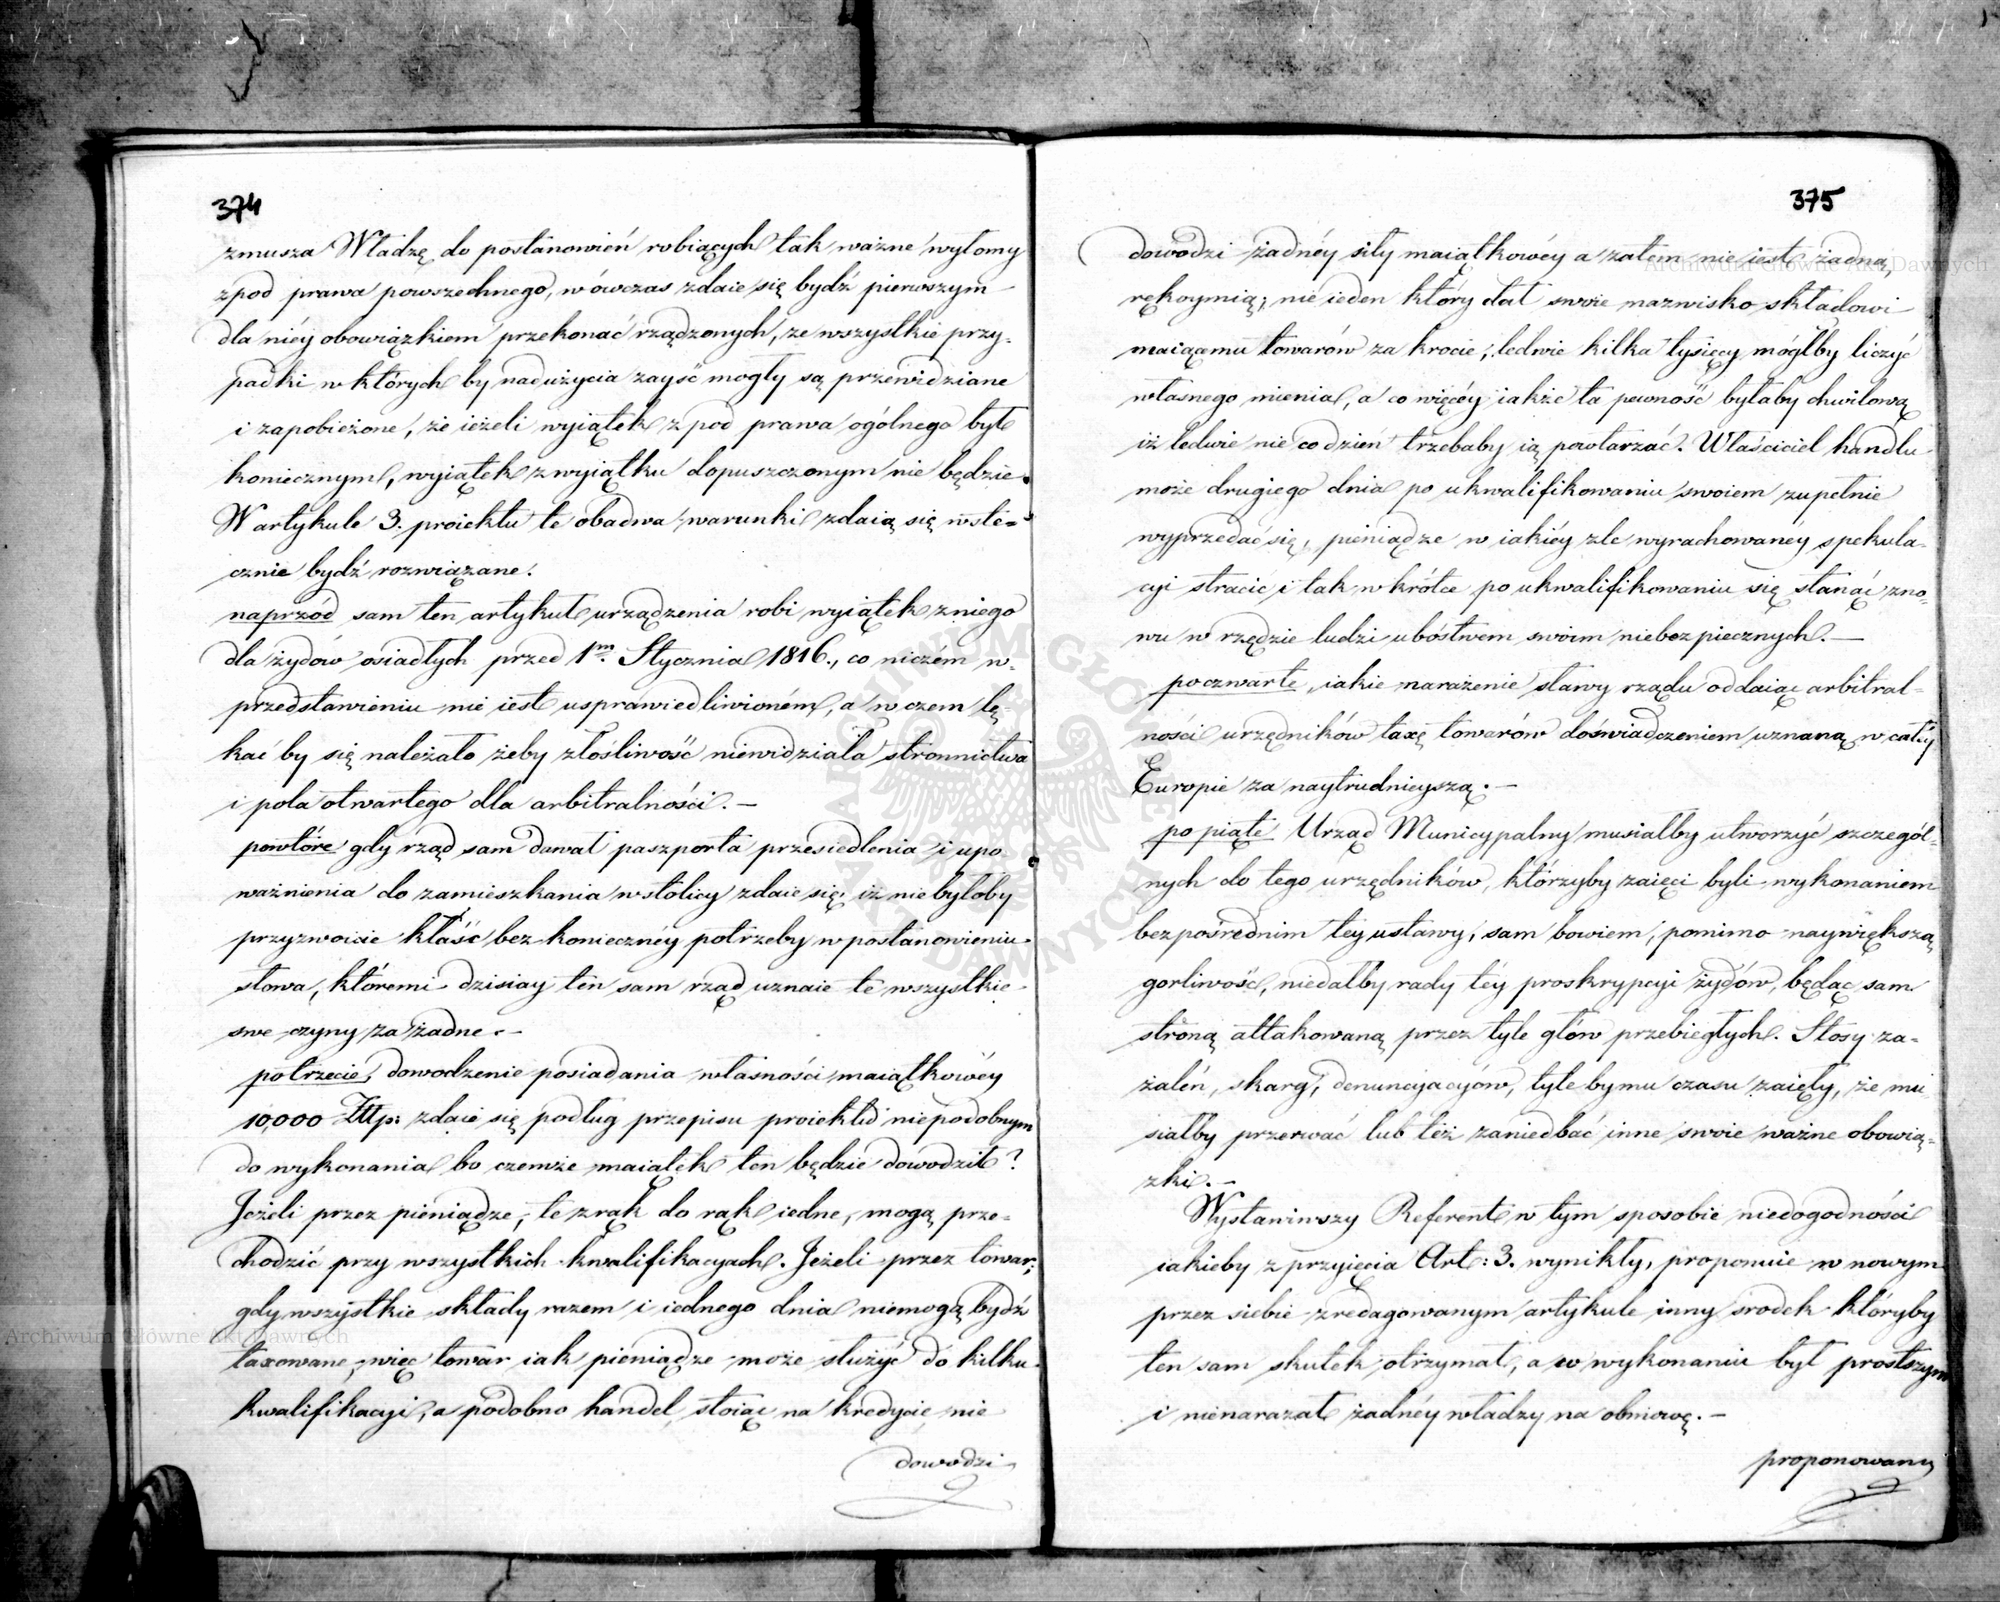 374
zmusza Władzę do postanowień robiących tak ważne wyłomy
zpod prawa powszechnego, wówczas zdaie się bydź pierwszym
dla niéy obowiązkiem przekonać rządzonych, że wszystkie przy-
padki w których by nadużycia zayść mogły są przewidziane
i zapobieżone, że ieżeli wyiątek z pod prawa ogólnego był
koniecznym, wyiątek z wyiątku dopuszczonym nie będzie.
W artykule 3. proiektu te obadwa warunki zdaią się wste-
cznie bydź rozwiązane.
naprzód sam ten artykuł urządzenia robi wyiątek z niego
dla żydów osiadłych przed 1m. Stycznia 1816., co niczém w
przedstawieniu nie iest usprawiedliwioném, a w czem lę-
kać by się należało żeby złośliwość niewidziała stronnictwa
i pola otwartego dla arbitralności. –
powtóre gdy rząd sam dawał paszporta przesiedlenia i upo-
ważnienia do zamieszkania w stolicy zdaie się, iż nie byłoby
przyzwoicie kłaść bez koniecznéy potrzeby w postanowieniu
słowa, któremi dzisiay ten sam rząd uznaie te wszystkie
swe czyny za żadne. –
potrzecie, dowodzenie posiadania własności maiątkowéy
10,000 Złlp: zdaie się podług przepisu proiektu niepodobnym
do wykonania, bo czemże maiątek ten będzie dowodził?
Jeżeli przez pieniądze, te z rąk do rąk iedne, mogą prze-
chodzić przy wszystkich kwalifikacyach. Jeżeli przez towar,
gdy wszystkie składy razem i iednego dnia niemogą bydź
taxowane, więc towar iak pieniądze może służyć do kilku
kwalifikacyi, a podobno handel stoiąc na kredycie nie
dowodzi
375
dowodzi żadnéy siły maiątkowéy a zatem nie iest żadną
rękoymią; nie ieden który dał swoie nazwisko składowi
maiącemu towarów za krocie, ledwie kilka tysięcy mógłby liczyć
własnego mienia, a co więcéy iakże ta pewność byłaby chwilową
iż ledwie nie codzień trzebaby ią powtarzać. Właściciel handlu
może drugiego dnia po ukwalifikowaniu swoiem zupełnie
wyprzedać się, pieniądze w iakiéy źle wyrachowanéy spekula-
cyi stracić i tak wkrótce po ukwalifikowaniu się stanąć zno-
wu w rzędzie ludzi ubóstwem swoim niebezpiecznych. –
poczwarte, iakie narażenie sławy rządu oddaiąc arbitral-
ności urzędników taxę towarów doświadczeniem uznaną w całéy
Europie za naytrudnieyszą. –
po piąte Urząd Municypalny musiałby utworzyć szczegól-
nych do tego urzędników, którzyby zaięci byli wykonaniem
bezpośrednim tey ustawy, sam bowiem, pomimo naywiększą
gorliwość, niedałby rady téy proskrypcyi żydów, będąc sam
stroną attakowaną przez tyle głów przebiegłych. Stosy za-
żaleń, skarg, denuncyacyów, tyle by mu czasu zaięły, że mu-
siałby przerwać lub też zaniedbać inne swoie ważne obowią-
zki. –
Wystawiwszy Referent w tym sposobie niedogodności
iakieby z przyięcia Art: 3. wynikły, proponuie w nowym
przez siebie zredagowanym artykule inny środek któryby
ten sam skutek otrzymał, a w wykonaniu był prostszym
i nienarażał żadnéy władzy na obmowę. –
proponowany